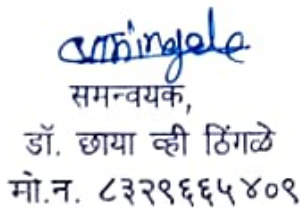 समन्वयक,
डॉ. छाया व्ही ठिंगळे
मो.न. ८३२९६६५४०९